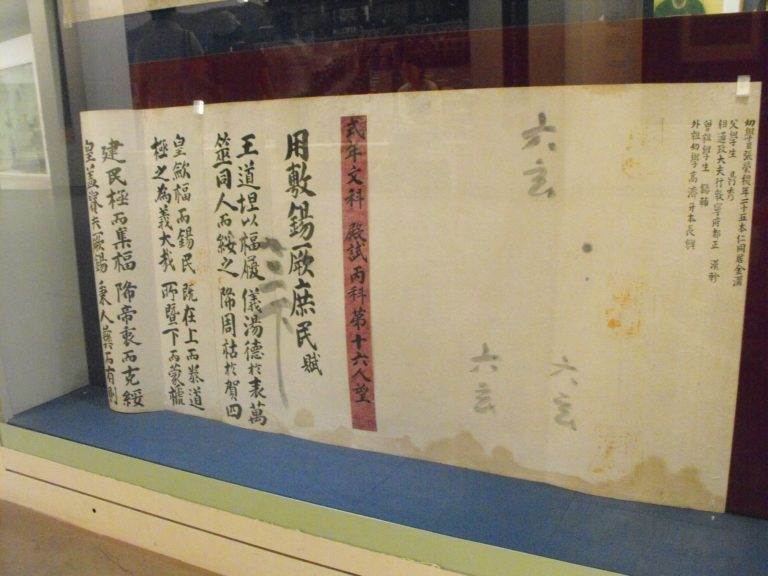 幼學臣張榮稷年二十五本仁同居金溝
父學生 秀
祖通政大夫行敦寧府都正 漢幹
曾祖學生 錫輔
外祖幼學高濟升本長興
六玄
六玄
六玄
式年文科 殿試丙科第十六人望
用敷錫厥庶民賦
王道坦以福履 儀湯德於表萬
筮同人而綏之 降周祜於賀四
皇歛福而錫民 旣在上而恭道
極之為義大哉 所曁下而蒙
建民極而集福 降帝衷而克綏
皇蓋 厥錫 秉人彝而有則